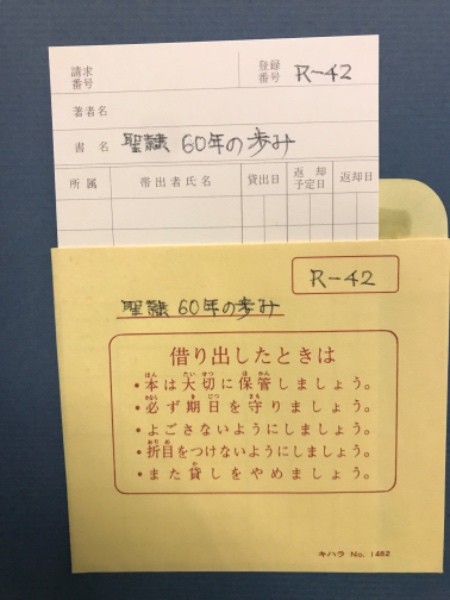 請求番号
登録番号 R-42
著者名
書名 聖隷60年の歩み
所属 帯出者氏名 貸出日 返却予定日 返却日
R-42
聖隷60年の歩み
借り出したときは
・本は大切に保管しましょう。
・必ず期日を守りましょう。
・よごさないようにしましょう。
・折目をつけないようにしましょう。
・また貸しをやめましょう。
キハラ No. 1482